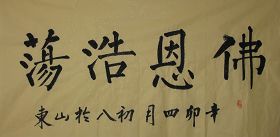 佛恩浩蕩
辛卯四月初八於山東